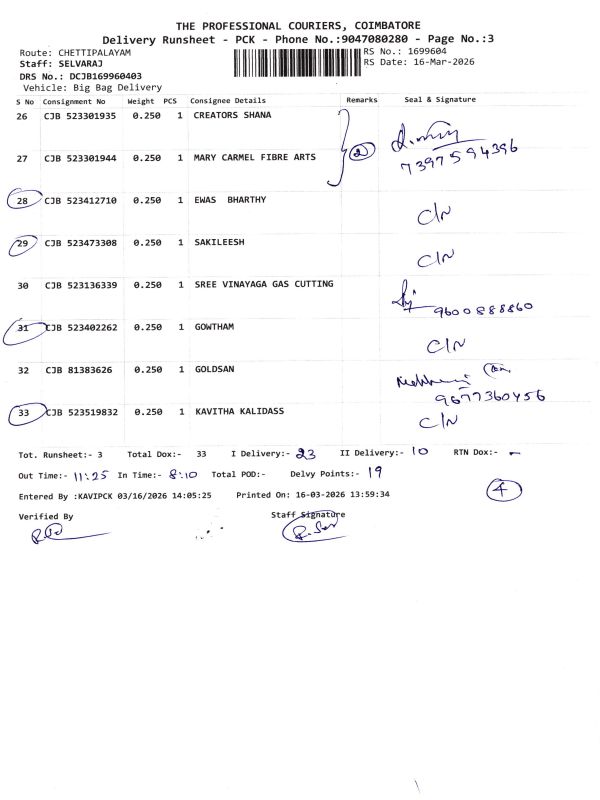 THE PROFESSIONAL COURIERS, COIMBATORE
Delivery Runsheet - PCK - Phone No.:9047080280 - Page No.:3
Route: CHETTIPALAYAM RS No.: 1699604
Staff: SELVARAJ RS Date: 16-Mar-2026
DRS No.: DCJB169960403
Vehicle: Big Bag Delivery
S No Consignment No Weight PCS Consignee Details Remarks Seal & Signature
26 CJB 523301935 0.250 1 CREATORS SHANA
27 CJB 523301944 0.250 1 MARY CARMEL FIBRE ARTS 2 7397594396
28 CJB 523412710 0.250 1 EWAS BHARTHY C/N
29 CJB 523473308 0.250 1 SAKILEESH C/N
30 CJB 523136339 0.250 1 SREE VINAYAGA GAS CUTTING 9600888860
31 CJB 523402262 0.250 1 GOWTHAM C/N
32 CJB 81383626 0.250 1 GOLDSAN 9677360456
33 CJB 523519832 0.250 1 KAVITHA KALIDASS C/N
Tot. Runsheet:- 3 Total Dox:- 33 I Delivery:- 23 II Delivery:- 10 RTN Dox:- -
Out Time:- 11:25 In Time:- 8:10 Total POD:- Delvy Points:- 19
Entered By :KAVIPCK 03/16/2026 14:05:25 Printed On: 16-03-2026 13:59:34 4
Verified By Staff Signature